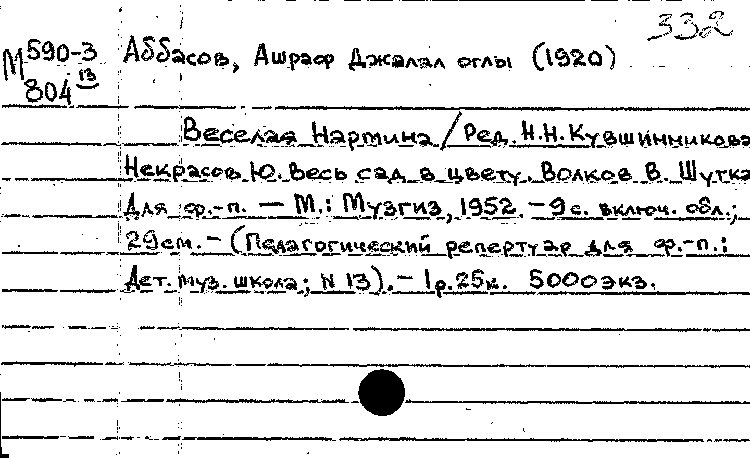 332
М 590-3 Аббасов, Ашраф Джалал оглы (1920)
804 13
Веселая Нармина / Ред. Н.Н. Кувшинникова
Некрасов Ю. Весь сад в цвету. Волков В. Шутка
Для ф.-п. — М.: Музгиз, 1952. – 9 с. включ. обл.;
29 см. – (Педагогический репертуар для ф.-п.:
Дет. муз. школа; N 13). – 1р.25к. 5000 экз.